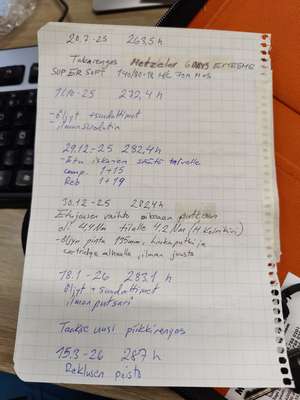 20.7-25 263,5 h
Takarengas Metzeler 6 DAYS EXTREME
SUPER SOFT 140/80-18 M/C 70M M+S
272,4 h
- Öljyt + suodattimet
ilmansuodatin
29.12.-25 282,4 h
- Etu iskarien säätö talvelle
comp. 1+15
Reb 1+19
30.12-25 282,4 h
Etujousien vaihto oikeaan putkeen
oli 4,4 Nm tilalle 4,2 Nm
- Öljyn pinta 135mm, ja
alhaalla, ilman jousta
18.1-26 283.1 h
Öljyt + suodattimet
ilmanputsari
Taakse uusi piikkirengas
15.3-26 287 h
Reklusen poisto